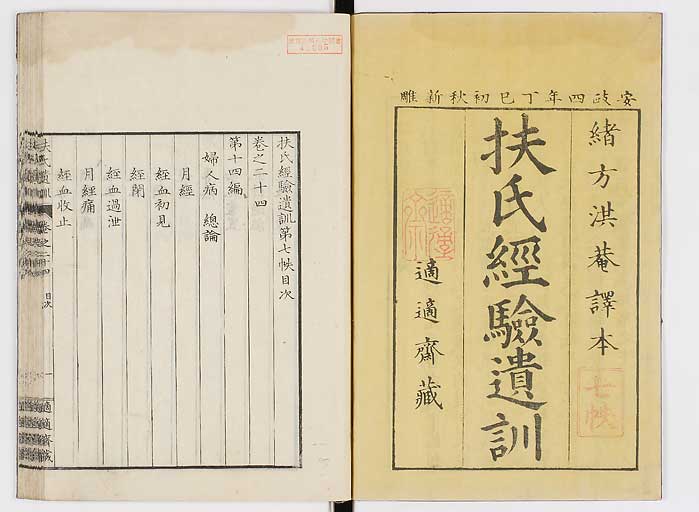 安政四年丁巳初秋新雕
緒方洪菴譯本
七帙
扶氏經驗遺訓
適適齋藏
扶氏經驗遺訓第七帙目次
卷之二十四
第十四編
婦人病 總論
月經
經血初見
經閉
經血過泄
月經痛
經血收止
扶氏遺訓 卷之二十四 目次 一 適適齋藏